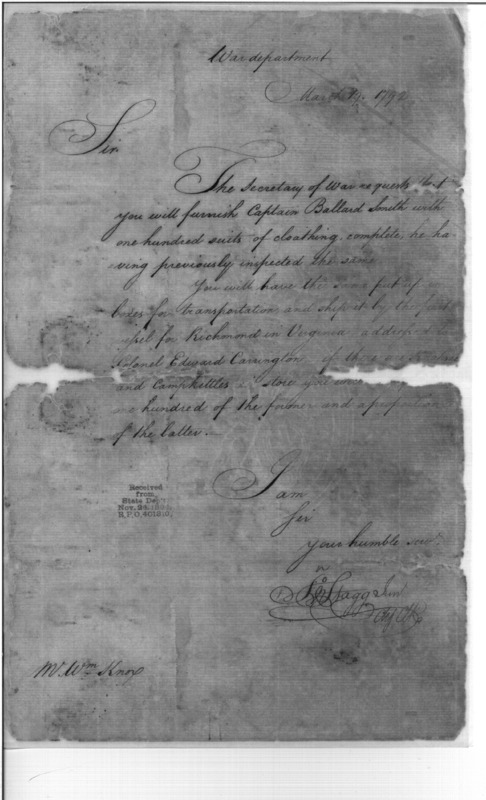 War department
March 1792
Sir
The Secretary of War requests that
you will furnish Captain Ballard Smith with
one hundred suits of cloathing complete, he ha
ving previously inspected the same
You will have the same put up in
boxes for transportation, and ship it by the first
vessel for Richmond in Virginia addressed to
Colonel Edward Carrington. If there are
and Campkettles in store you
one hundred of the former and a proportion
of the latter.
I am
Sir
your humble serv
Jno Stagg Junr
Mr. Wm Knox
Received
from
State Dep't,
Nov. 24,
R.P.O. 401210,